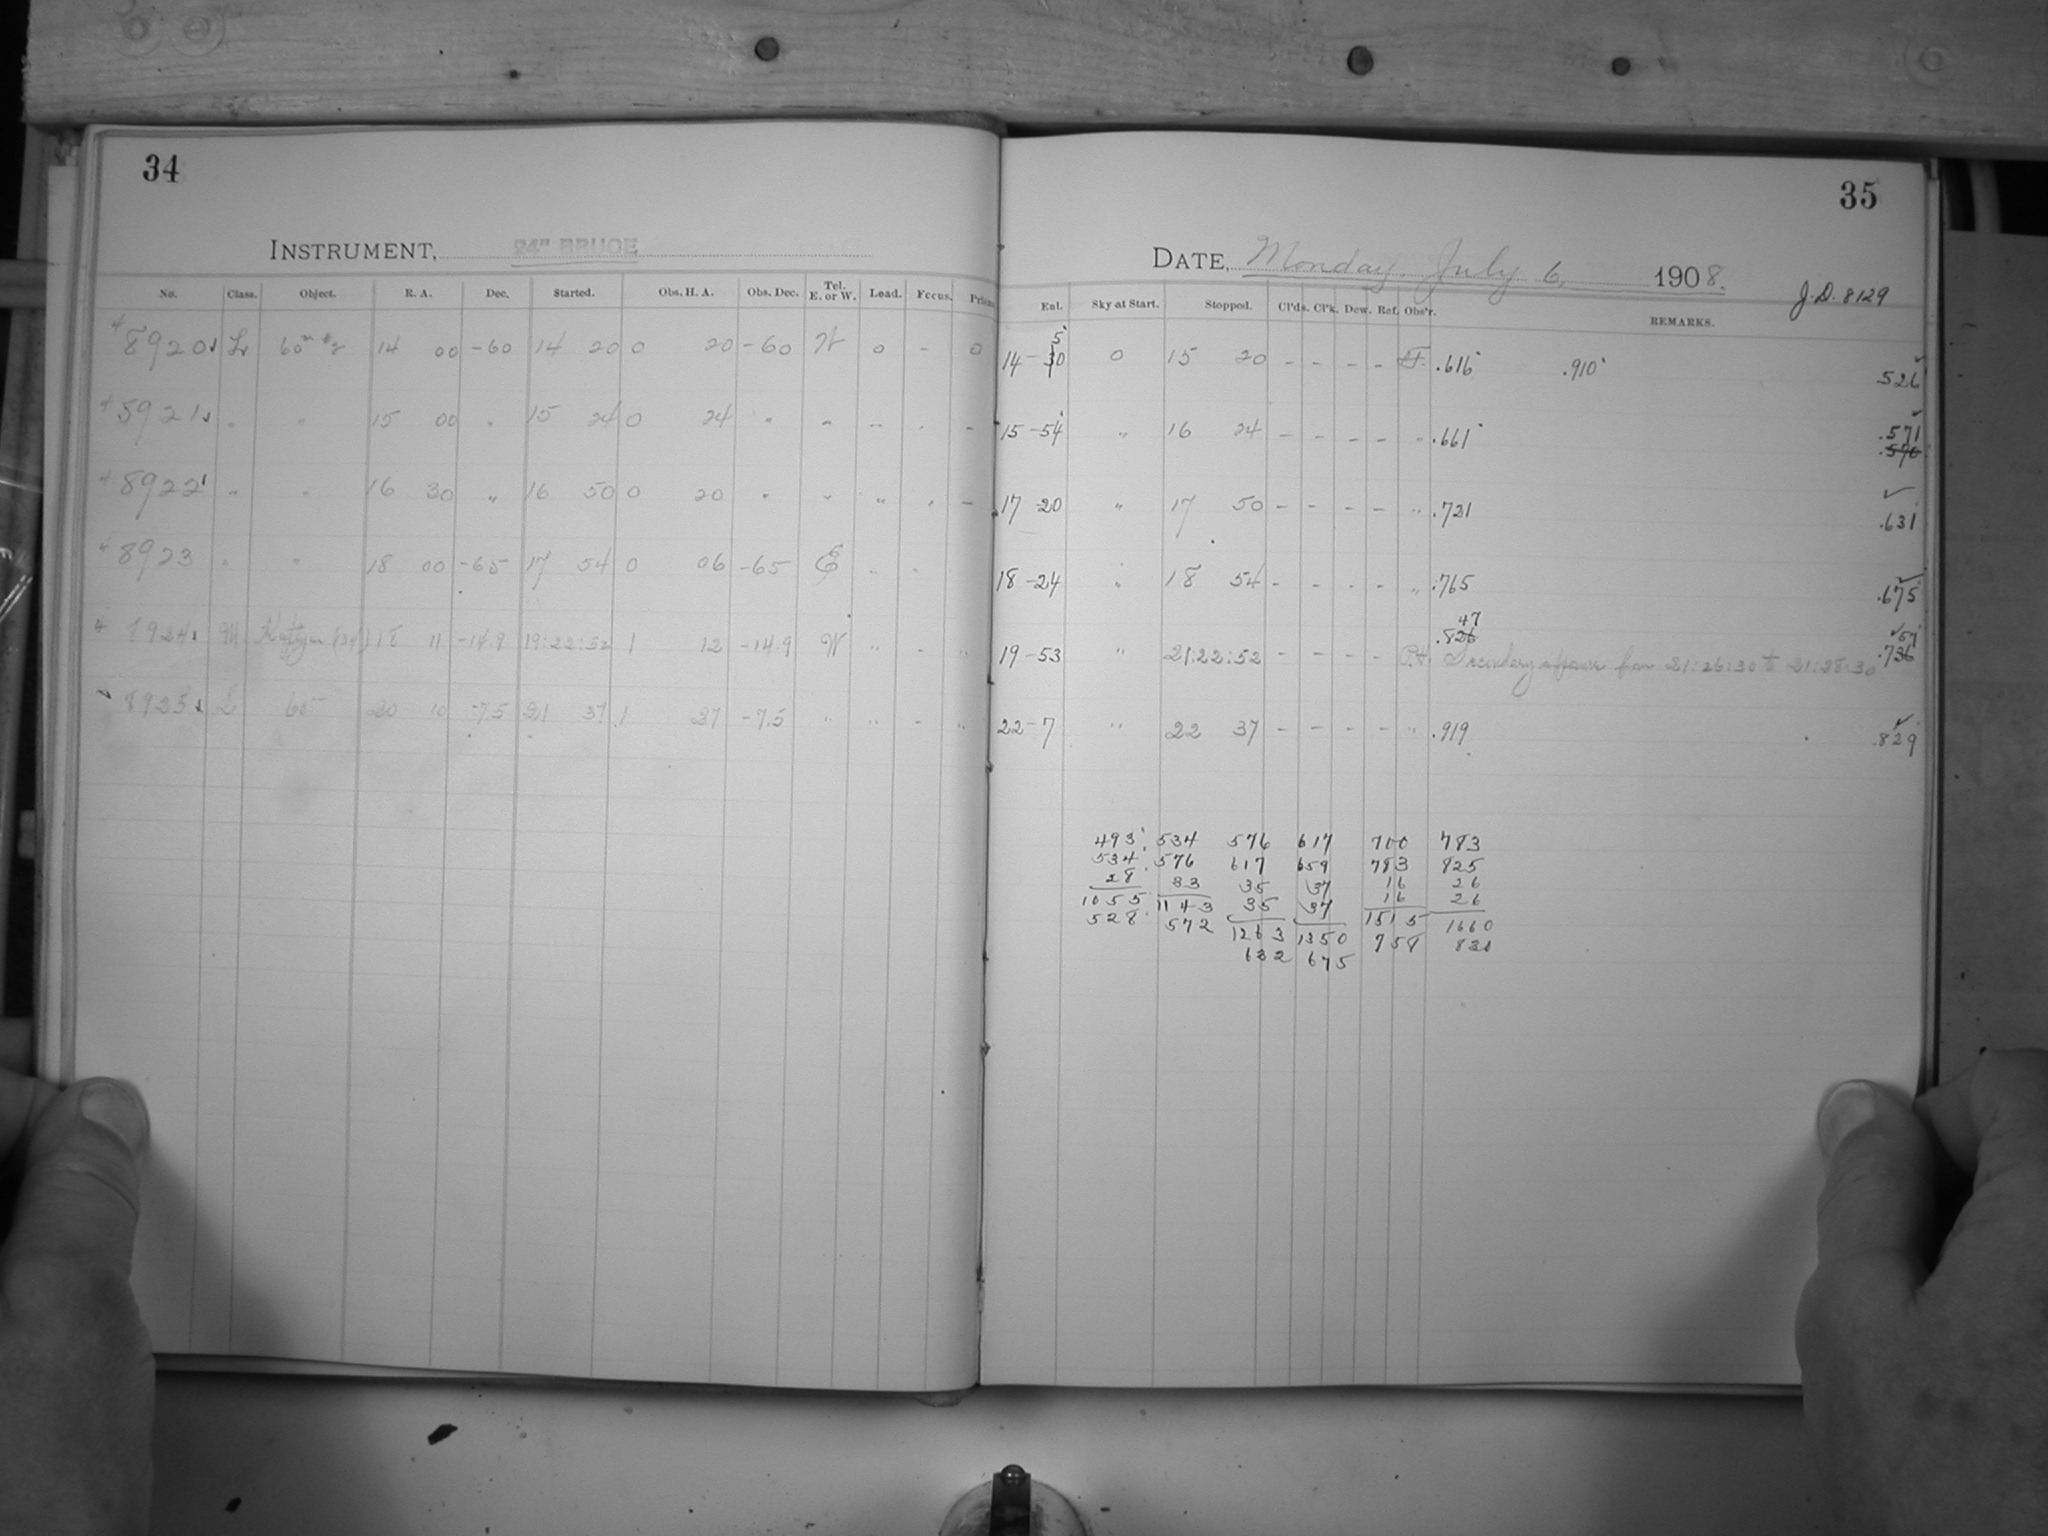 34
INSTRUMENT, 24" BRUCE
No. Class. Object. R. A. Dec. Started. Obs. H. A. Obs. Dec. Tel. E. or W. Load. Focus. Prism
8920 60m 14 00 -60 14 20 0 20 -60 W 0 - 0
8921 " " 15 00 " 15 24 0 24 " " -
8922 " " 16 30 " 16 50 0 20 " " " " -
8923 " " 18 00 -65 17 54 0 06 -65 E " "
8924 18 11 -14.9 19:22:52 1 12 -14.9 W " - "
8925 60 20 10 -75 21 37 1 37 -75 " " - "
35
DATE, Monday, July 6, 1908.
J.D. 8129
Ent. Sky at Start. Stopped. Cl'ds. Cl'k. Dew. Ref. Obs'r. REMARKS.
5
14-30 0 15 20 - - - - .616 .910 .526
15-54 " 16 24 - - - - " .661 .571
.576
17 20 " 17 50 - - - - " .721 .631
18-24 " 18 54 - - - - " .765 .675
47
.826 57
19-53 " 21:22:52 - - - - P.H. Secondary exposure from 21:26:30 to 21:28:30 .736
22-7 " 22 37 - - - - " .919 .829
493 534 576 617 700 783
534 576 617 659 783 825
28 33 35 37 16 26
1055 1143 35 37 16 26
528 572 1263 1350 1515 1660
632 675 758 830